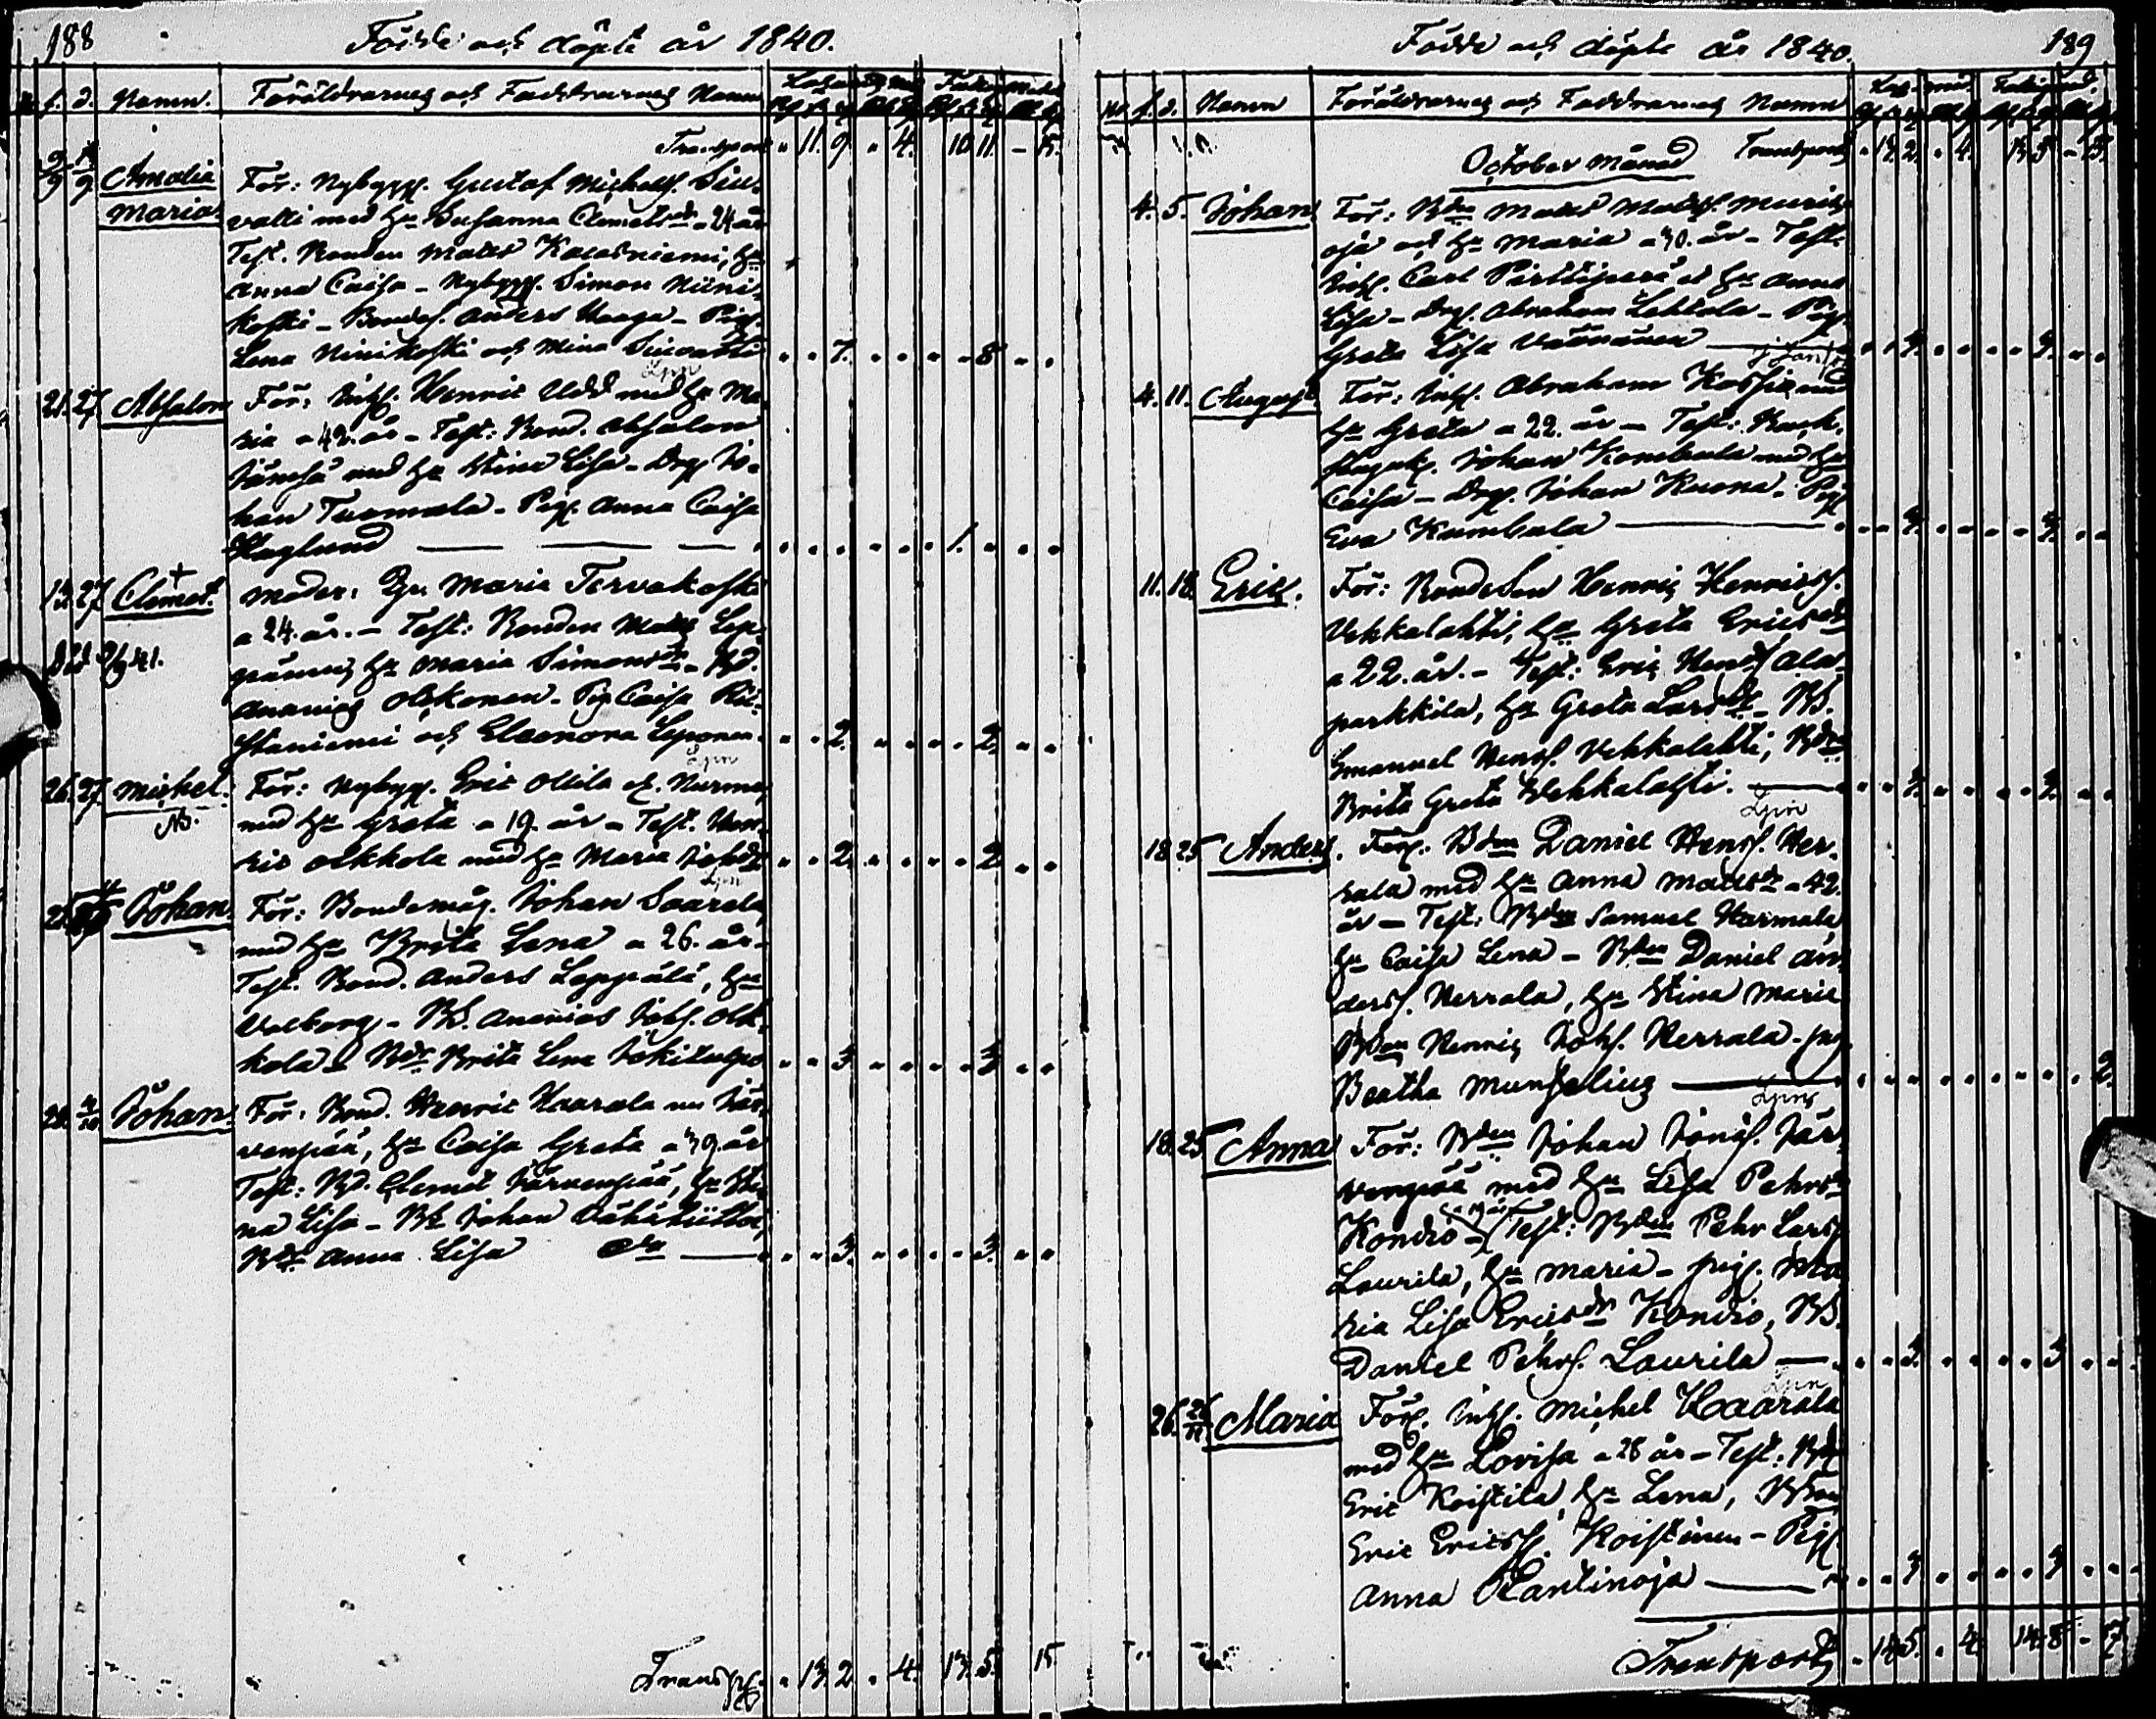 188 Födde och döpte år 1840.
f. d. Namn. Föräldrarnes och Faddrarnes Namn
Transport „ 11. 9. „ 4. 10. 11. – 15.
Amalia För: Nybygg. Gustaf Michelss. Siu-
Maria valli med h:u Susanna Clemetsdr „ 24 år
Test. Bonden Matts h:u
Anna Caisa – Nybygg. Simon Niini-
koski – Bondes. Anders Haaga – Pig.
Lena Niinikoski och Mina Siuvatti „ „ 7. „ „ „ „ 8 „ „
21. 27. Absalon För: Inhs. Henric Udd med h:u Ma-
ria „ 42. år – Test: Bond. Absalon
Jämsä med h:u Stina Lisa – Drg Jo-
han Tuomala – Pig. Anna Caisa
Haglund – 1.
27. Clemet. Moder: Maria Tervakoski
„ 24. år. – Test: Bonden Matts Lep-
41. pänen, h:u Maria Simonsdr – Bd.
Ananias Olkonen – Pig Caisa
staniemi och Eleonora Leponen „ „ 2. „ „ „ „ 2. „ „
26. 27. Michel. För: Nybygg. Eric Ollila
NB. med h:u Greta „ 19. år – Test. Hen-
ric Olkkola med h:u Maria Johsdr „ „ 2. „ „ „ „ 2. „ „
Johan. För: Bondemåg. Johan Saarela,
med h:u Brita Lena „ 26. år –
Test. Bond. Anders Leppälä, h:u
Valborg – BS. Ananias Johs. Olk-
kola & Bdr. Brita Lena „ „ 3. „ „ „ „ 3. „ „
Johan. För: Bond. Henric Haarala
venpää, h:u Caisa Greta „ 39. år
Test: Bd. Clemet Järvenpää, h:u Sti-
na Lisa – Johan
Bdr. Anna Lisa – „ „ 3. „ „ „ „ 3. „ „
Transp. „ 13. 2. „ 4. 13. 5. 15.
Födde och döpte år 1840. 189
No. f. d. Namn Föräldrarnes och Faddrarnes Namn
October Månad Transport „ 13. 2. „ 4. 13. 5. „ 15.
4. 5. Johan För: Bdn Matts Matss.
oja och h:u Maria „ 30. år – Test.
Inhs. Carl Pirttiperä h:u Anna
Lisa – Drg. Abraham Lehtola – Pig.
Greta Lisa Väänänen –
4. 11. August För: Inhs. Abraham med
h:u Greta „ 22. år – Test:
Johan Kombala med h:u
Caisa – Drg. Johan Kuona – Pig
Eva Kambala –
11. 18. Eric. För: Bondeson Henric Henricss.
Vehkalahti, h:u Greta Ericsdr
„ 22. år. – Test: Eric Henss Ala-
parkkila, h:u Greta Larsdr – BS.
Emanuel Henss. Vehkalahti, Bdrn
Brita Greta Wehkalahti. –
18 25 Anders. För. Bdn Daniel Henss. Her-
rala med h:u Anna Mattsdr „ 42.
år – Test: Bdn Samuel Harmala
h:u Caisa Lena – Bdn Daniel An-
derss. Herrala, h:u Stina Maria
Bdn Henric Johs. Herrala – pig
Beatha Munselius – 2.
18. 25 Anna För: Bdn Johan Jär-
venpää med h:u Lisa Pehrsdr
Kondio – Test: Bdn Pehr Larss
Laurila, h:u Maria – pig. Ma-
ria Lisa Ericsdr Kondio, BS.
Daniel Pehrs. Laurila – „ „ 3. „ „ „ „ 3 „ „
26. Maria För. Inhs. Michel Haarala
med h:u Lovisa „ 28 år – Test: Bd
Eric Koistila, h:u Lena, BSon
Eric Ericss. Koistinen – Pig
Anna Rantinoja – „ „ 3 „ „ „ „ 3 „ „
Transport